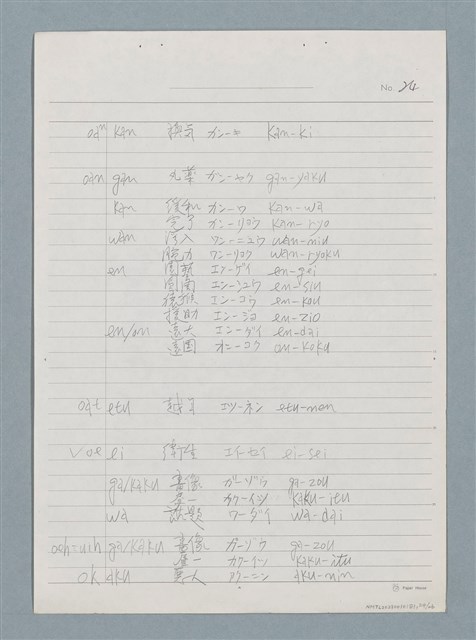 No. 24
oaⁿ kan 換気 カン-キ kan-ki
oan gan 丸薬 ガン-ヤク gan-yaku
kan 緩和 カン-ワ kan-wa
完了 カン-リョウ kan-ryo
wan ワン-ニュウ wan-niu
腕力 ワン-リョク wan-ryoku
en 園芸 エン-ゲイ en-gei
エン-シュウ en-siu
エン-コウ en-kou
援助 エン-ジョ en-zio
en/on 遠大 エン-ダイ en-dai
遠国 オン-コク on-koku
oat etu 越年 エツ-ネン etu-nen
oe ei 衛生 エイ-セイ ei-sei
ga/kaku 畫像 ガ-ゾウ ga-zou
畫一 カク-イツ kaku-itu
wa 話題 ワ-ダイ wa-dai
oeh=uih ga/kaku 畫像 ガ-ゾウ ga-zou
畫一 カク-イツ kaku-itu
ok aku 悪人 アク-ニン aku-nin